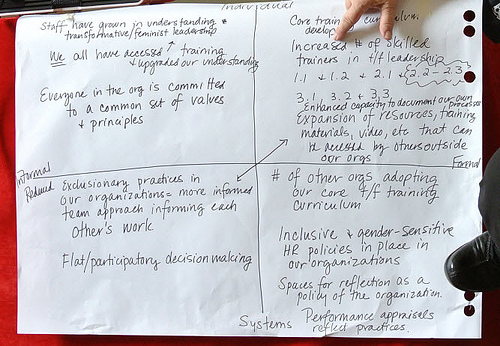 Individual
Staff have grown in understanding &
transformative/feminist leadership
We all have accessed ↑ training
& upgraded our understanding
Everyone in the org is committed
to a common set of values
& principles
Core train curriculum
develop
Increased # of skilled
trainers in t/f leadership
1.1 + 1.2 + 2.1 + 2.2 - 2.3
3.1, 3.2 + 3.3
Enhanced capacity to document our own
processes
Expansion of resources, training
materials, video, etc that can
be accessed by others outside
our orgs
Informal
Formal
Reduced Exclusionary practices in
our organizations = more informed
team approach informing each
other's work
Flat/participatory decision making
# of other orgs adopting
our core t/f training
curriculum
Inclusive & gender-sensitive
HR policies in place in
our organizations
Spaces for reflection as a
policy of the organization.
Systems
Performance appraisals
reflect practices.